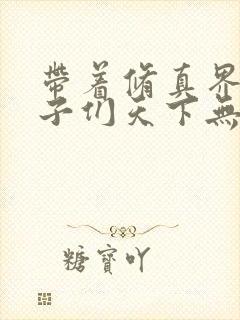 帶着脩真界
子们天下無
糖寶吖